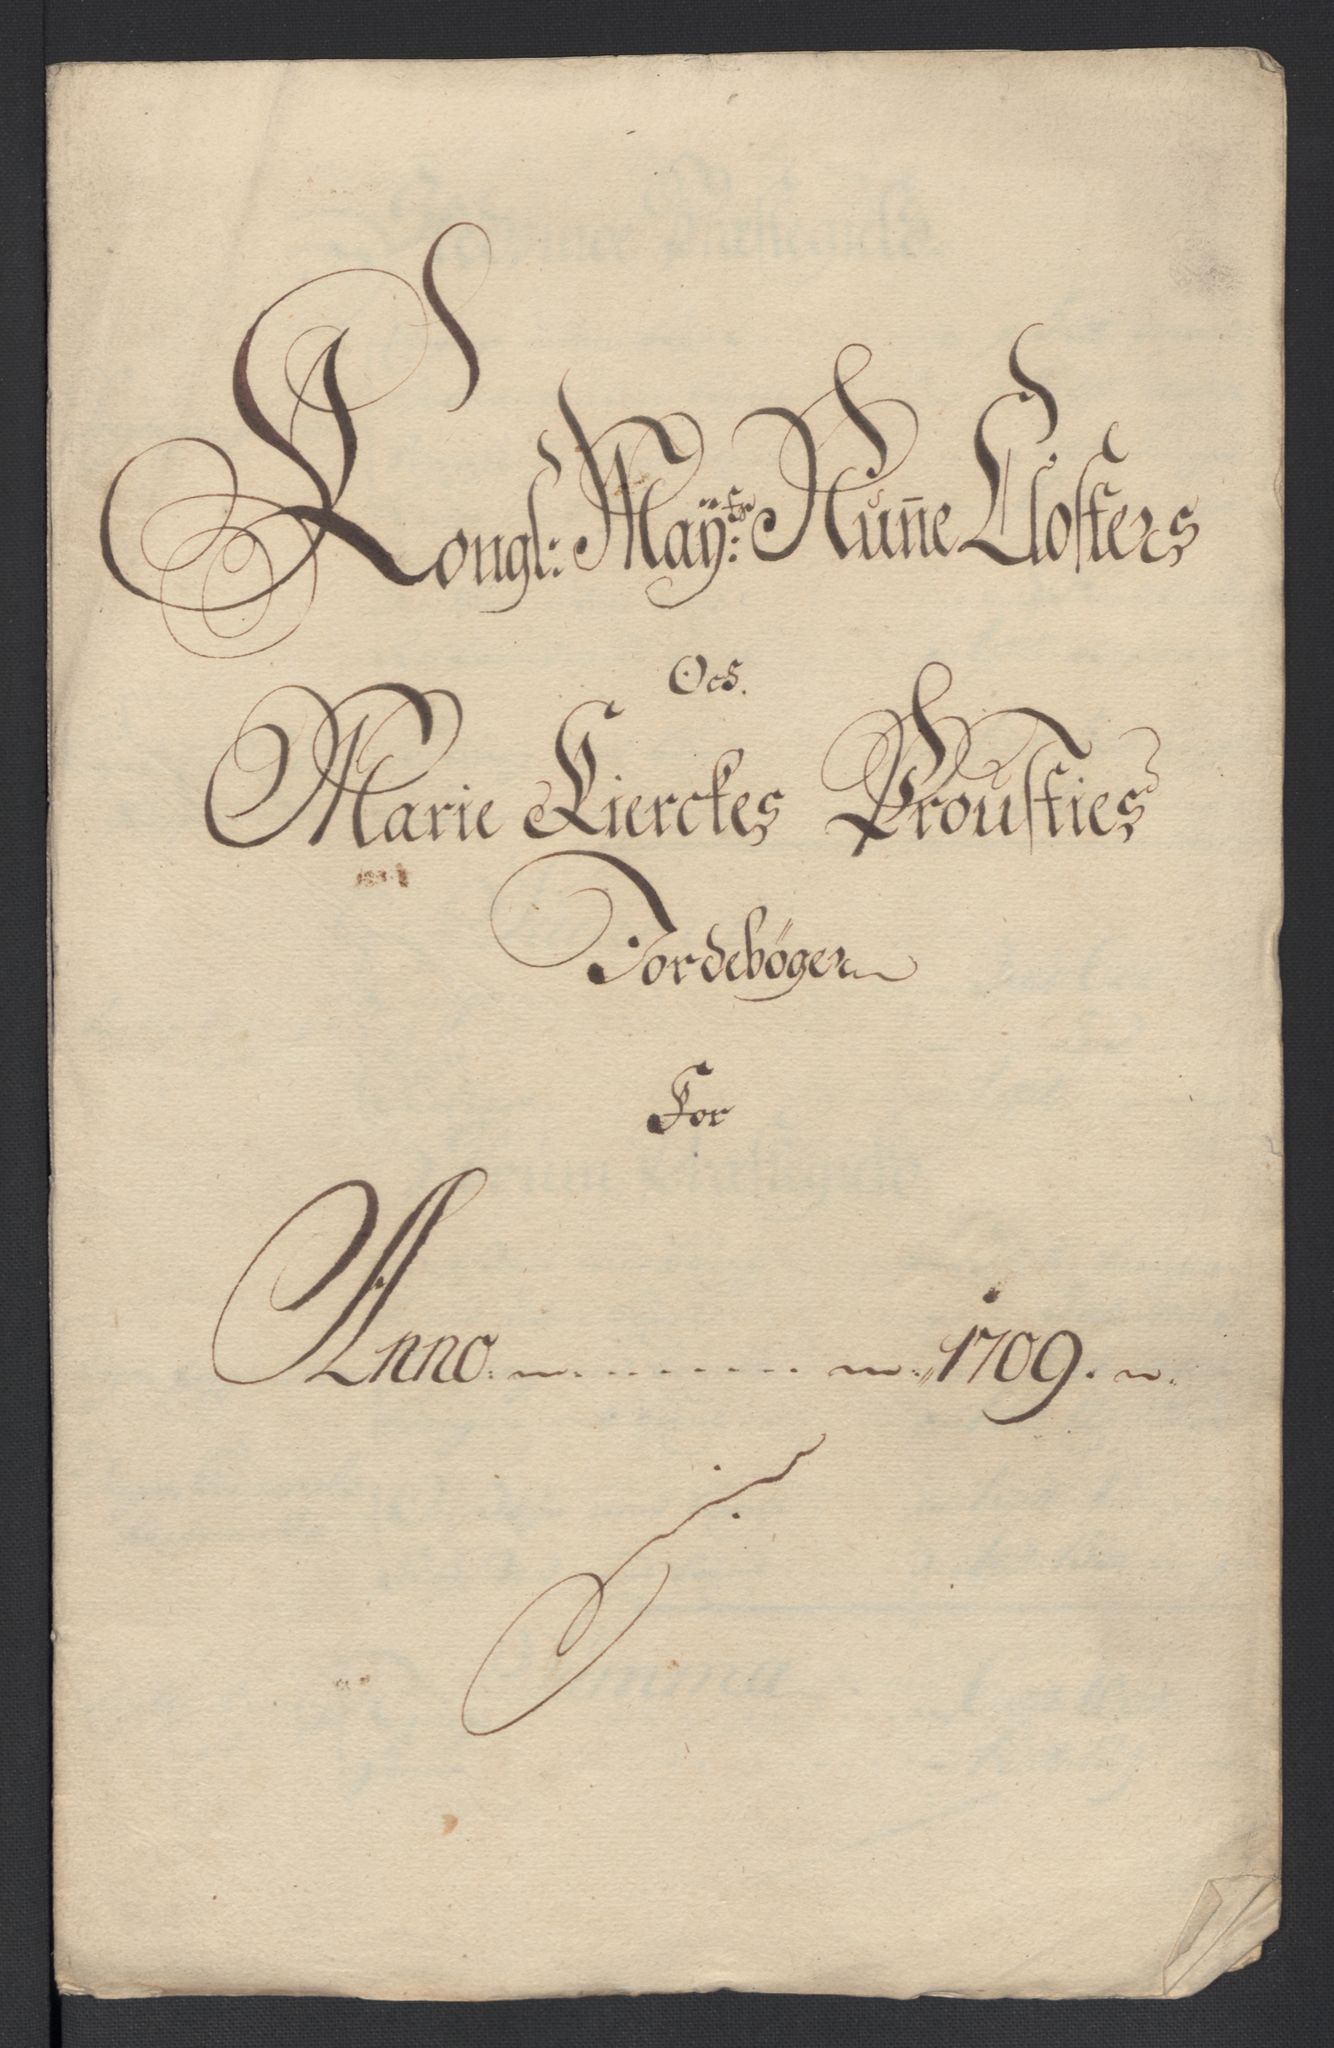 Kongl: Maÿ:ts Nun̄e Closters
Och.
Marie Kierckes Prousties
Jordebøger
For
Anno. 1709.